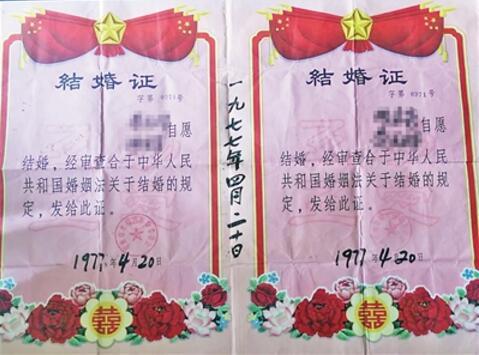 結婚证
字第 0971号
自愿
结婚，经审查合于中华人民
共和国婚姻法关于结婚的规
定，发给此证。
1977年4月20日
囍
一九七七年四月二十日
結婚证
字第 0971号
自愿
结婚，经审查合于中华人民
共和国婚姻法关于结婚的规
定，发给此证。
1977年4月20日
囍